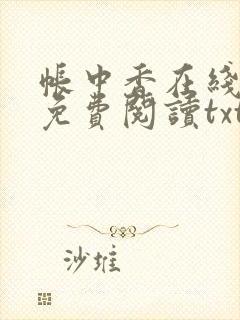 帳中香在綫
免費閱讀txt
沙堆